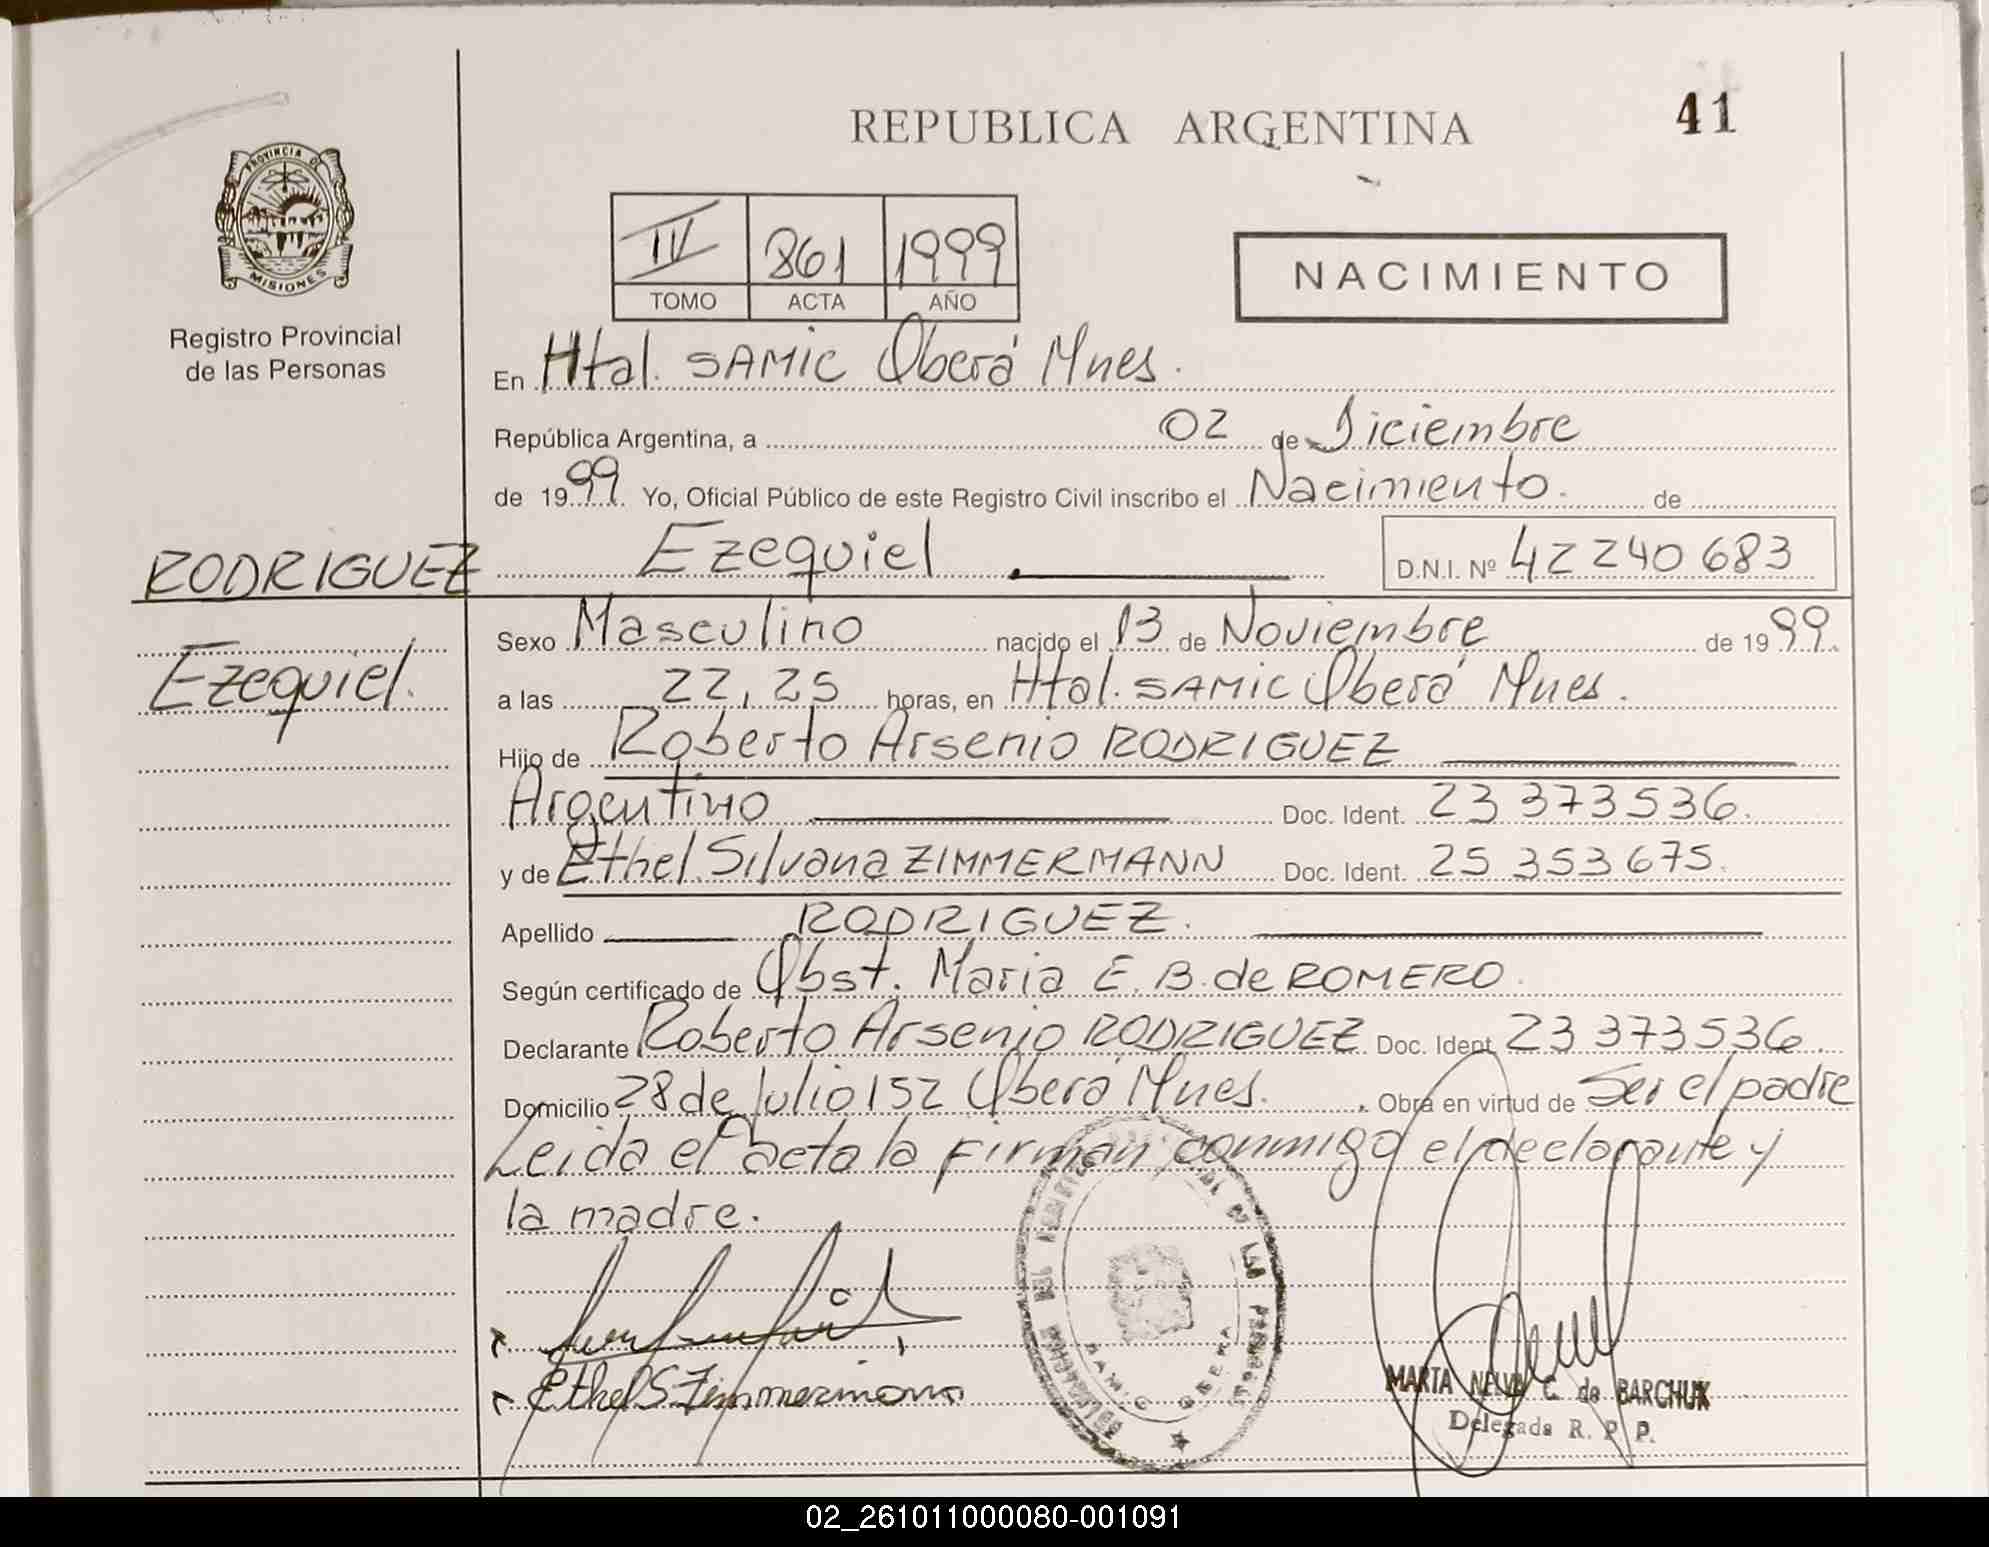 REPUBLICA ARGENTINA
41
PROVINCIA DE
MISIONES
Registro Provincial
de las Personas
IV 861 1999
TOMO ACTA AÑO
NACIMIENTO
En Htal. SAMIC Oberá Mnes.
República Argentina, a 02 de Diciembre
de 1999. Yo, Oficial Público de este Registro Civil inscribo el Nacimiento. de
RODRIGUEZ Ezequiel D.N.I. Nº 42 240 683
Ezequiel.
Sexo Masculino nacido el 13 de Noviembre de 1999.
a las 22,25 horas, en Htal. SAMIC Oberá Mnes.
Hijo de Roberto Arsenio RODRIGUEZ
Argentino Doc. Ident. 23 373536.
y de Ethel Silvana ZIMMERMANN Doc. Ident. 25 353 675.
Apellido RODRIGUEZ.
Según certificado de Obst. Maria E. B. de ROMERO.
Declarante Roberto Arsenio RODRIGUEZ Doc. Ident. 23 373536.
Domicilio 28 de Julio 152 Oberá Mnes. Obra en virtud de Ser el padre
Leida el acta la firman conmigo el declarante y
la madre.
Ethel S Zimmermann
DELEGACION DEL REGISTRO DE LAS PERSONAS
SAMIC OBERA
MARTA NELVA C. de BARCHUK
Delegada R. P. P.
02_261011000080-001091